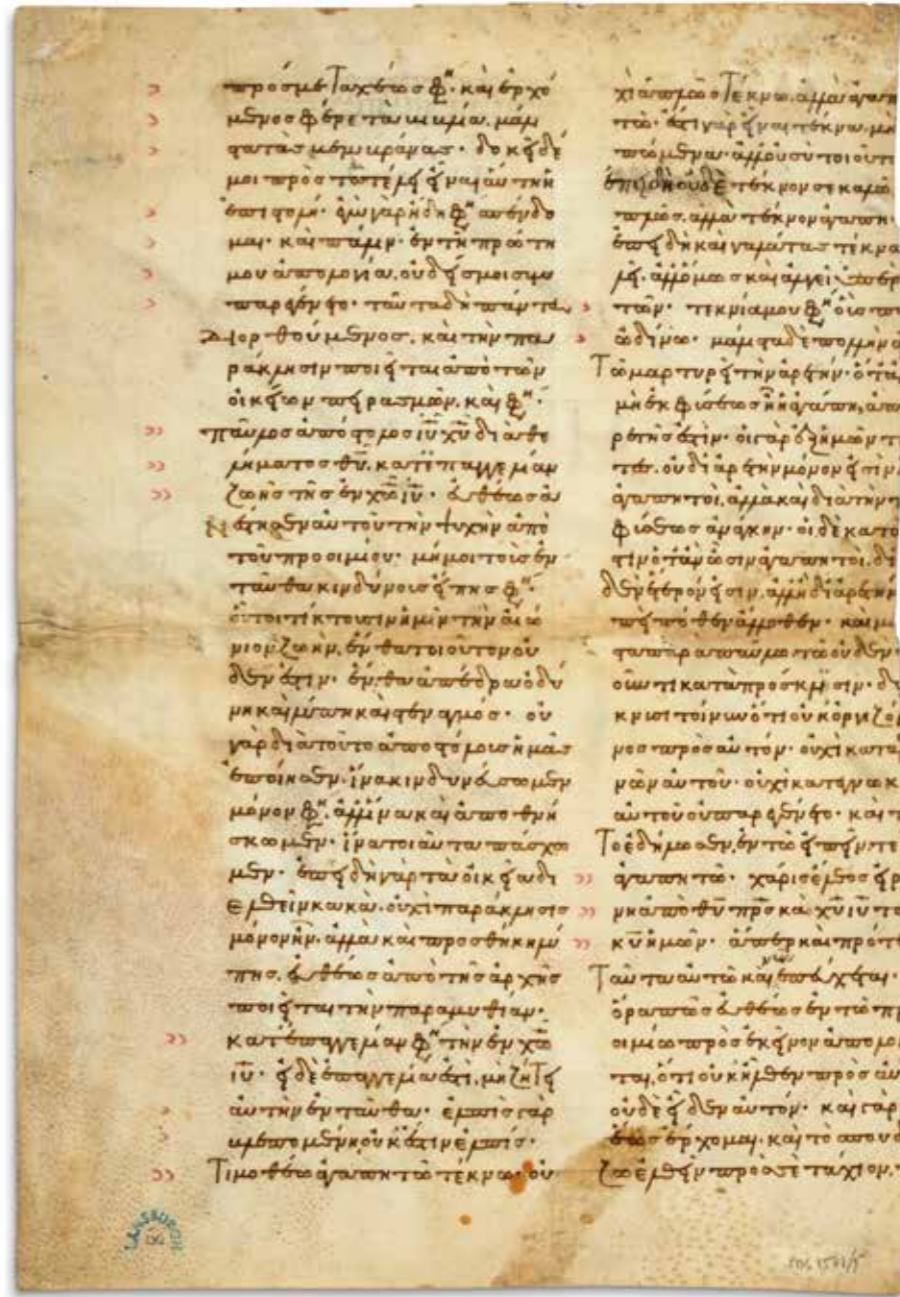 πρόσμε Ταχέωσ φη· καὶ ἐρχό
μενοσ φέρε τὰ βιβλία. μάλι
στα τὰσ μεμβράνασ· δοκεῖ δέ
μοι πρὸσ τῶ τέλει εἶναι αὕτη ἡ
ἐπιστολή· ἐγὼ γὰρ ἤδη φη σπένδο
μαι· καὶ πάλιν· ἐν τῆ πρώτη
μου ἀπολογία, οὐδείσ μοι συμ
παρεγένετο. ταῦτα δὴ πάντα
Διορθούμενοσ, καὶ τὴν πα
ράκλησιν ποιεῖται ἀπὸ τῶν
οἰκείων πειρασμῶν. καὶ φη·
παῦλοσ ἀπόστολοσ ιυ χυ διὰ θε
λήματοσ θυ. κατ' ἐπαγγελίαν
ζωῆσ τῆσ ἐν χω ιυ· εὐθέωσ ἀ
Νέστησεν αὐτοῦ τὴν ψυχὴν ἀπὸ
τοῦ προοιμίου· μή μοι τοὺσ ἐν
ταῦθα κινδύνουσ εἴπησ φη·
οὗτοι τίκτουσιν ἡμῖν τὴν αἰώ
νιον ζωὴν. ἔνθα τοιοῦτον οὐ
δέν ἐστιν· ἔνθα ἀπέδρα ὀδύ
νη καὶ λύπη καὶ στεναγμόσ· οὐ
γὰρ διὰ τοῦτο ἀποστόλουσ ἡμᾶσ
ἐποίησεν. ἵνα κινδυνεύσωμεν
μόνον φη. ἀλλ' ἵνα καὶ ἀποθνή
σκωμεν· ἵνα τοιαῦτα πάσχω
μεν· ἐπειδὴ γὰρ τὰ οἰκεῖα δι
ελθεῖν κακὰ. οὐχὶ παράκλησισ
μόνον ἦν. ἀλλὰ καὶ προσθήκη λύ
πησ, εὐθέωσ ἀπὸ τῆσ ἀρχῆσ
ποιεῖται τὴν παραμυθίαν·
κατ' ἐπαγγελίαν φη τὴν ἐν χω
ιυ· εἰ δὲ ἐπαγγελία ἐστι, μὴ ζήτει
αὐτὴν ἐνταῦθα· ἐλπὶσ γὰρ
βλεπομένη οὐκ ἔστιν ἐλπίσ·
Τιμοθέω ἀγαπητῶ τέκνω· οὐ
χὶ ἁπλῶσ Τέκνω. ἀλλὰ ἀγαπη
τῶ· ἔστι γὰρ εἶναι τέκνα. μὴ
πώμενα· ἀλλ' οὐ σὺ τοιοῦτο
ἐπειδὴ οὐδὲ τέκνον σε καλῶ
πλῶσ. ἀλλὰ τέκνον ἀγαπη
ἐπειδὴ καὶ γαλάτασ τέκνα
λεῖ. ἀλλ' ὅμωσ καὶ ἀλγεῖ ὑπὲρ
τῶν· τεκνία μου φη οἷσ π
ὠδίνω· μάλιστα δὲ πολλὴν
Τῶ μαρτυρεῖ τὴν ἀρετὴν· ὅτα
μὴ ἐκ φύσεωσ ἦ ἡ ἀγάπη, ἀπ
ρετῆσ ἐστιν· οἱ γὰρ ἐξ ἡμῶν τ
τεσ. οὐ δι' ἀρετὴν μόνον εἰσὶν
ἀγαπητοὶ, ἀλλὰ καὶ διὰ τὴν τ
φύσεωσ ἀνάγκην· οἱ δὲ κατὰ
τιν ὅταν ὦσιν ἀγαπητοὶ, δι'
δὲν ἕτερόν εἰσιν, ἀλλ' ἢ δι' ἀρετὴν
πεὶ πόθεν ἄλλοθεν· καὶ μά
στα παρὰ παύλω τῶ οὐδὲν
οῦντι κατὰ πρόσκλισιν· δε
κνυσι τοίνυν ὅτι οὐκ ὀργιζό
νοσ πρὸσ αὐτόν· οὐχὶ κατα
νῶν αὐτοῦ· οὐχὶ κατεγνωκ
αὐτοῦ οὐ παρεγένετο· καὶ τ
Τοέδήλωσεν, ἐν τῶ εἰπεῖν· τε
ἀγαπητῶ· χάρισ ἔλεοσ εἰρ
νη ἀπὸ θυ πρσ κὰ χυ ιυ το
κυ ἡμῶν· ἅπερ καὶ πρότε
Ταῦτα αὐτῶ καὶ νῦν ἐπεύχεται·
ὅρα πῶσ εὐθέωσ ἐν τῶ πρ
οιμίω πρὸσ ἐκεῖνον ἀπολογ
ται, ὅτι οὐκ ἦλθεν πρὸσ αὐ
οὐδὲ εἶδεν αὐτόν· καὶ γὰρ
ἕωσ ἔρχομαι· καὶ τὸ σπουδ
ζω ἐλθεῖν πρόσ σε τάχιον,
LANSBURGH
ms. 1571/5